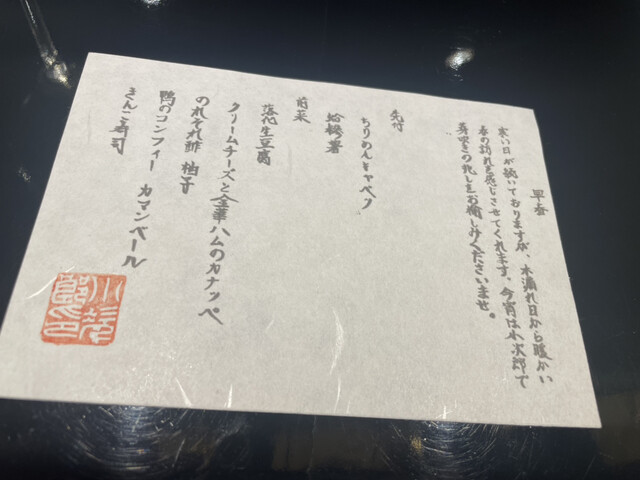 早春
寒い日が続いておりますが、木漏れ日から暖かい
春の訪れを感じさせてくれます。今宵は小次郎で
春の兆しをお愉しみくださいませ。
先付
ちりめんキャベツ
蛤
前菜
落花生豆腐
クリームチーズと金華ハムのカナッペ
のれそれ酢 柚子
鴨のコンフィー カマンベール
きんこ寿司